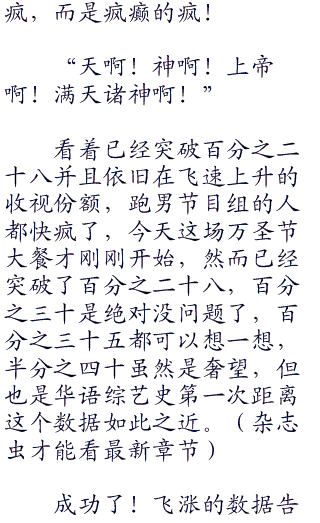 疯，而是疯癫的疯！
“天啊！神啊！上帝
啊！满天诸神啊！”
看着已经突破百分之二
十八并且依旧在飞速上升的
收视份额，跑男节目组的人
都快疯了，今天这场万圣节
大餐才刚刚开始，然而已经
突破了百分之二十八，百分
之三十是绝对没问题了，百
分之三十五都可以想一想，
半分之四十虽然是奢望，但
也是华语综艺史第一次距离
这个数据如此之近。（杂志
虫才能看最新章节）
成功了！飞涨的数据告